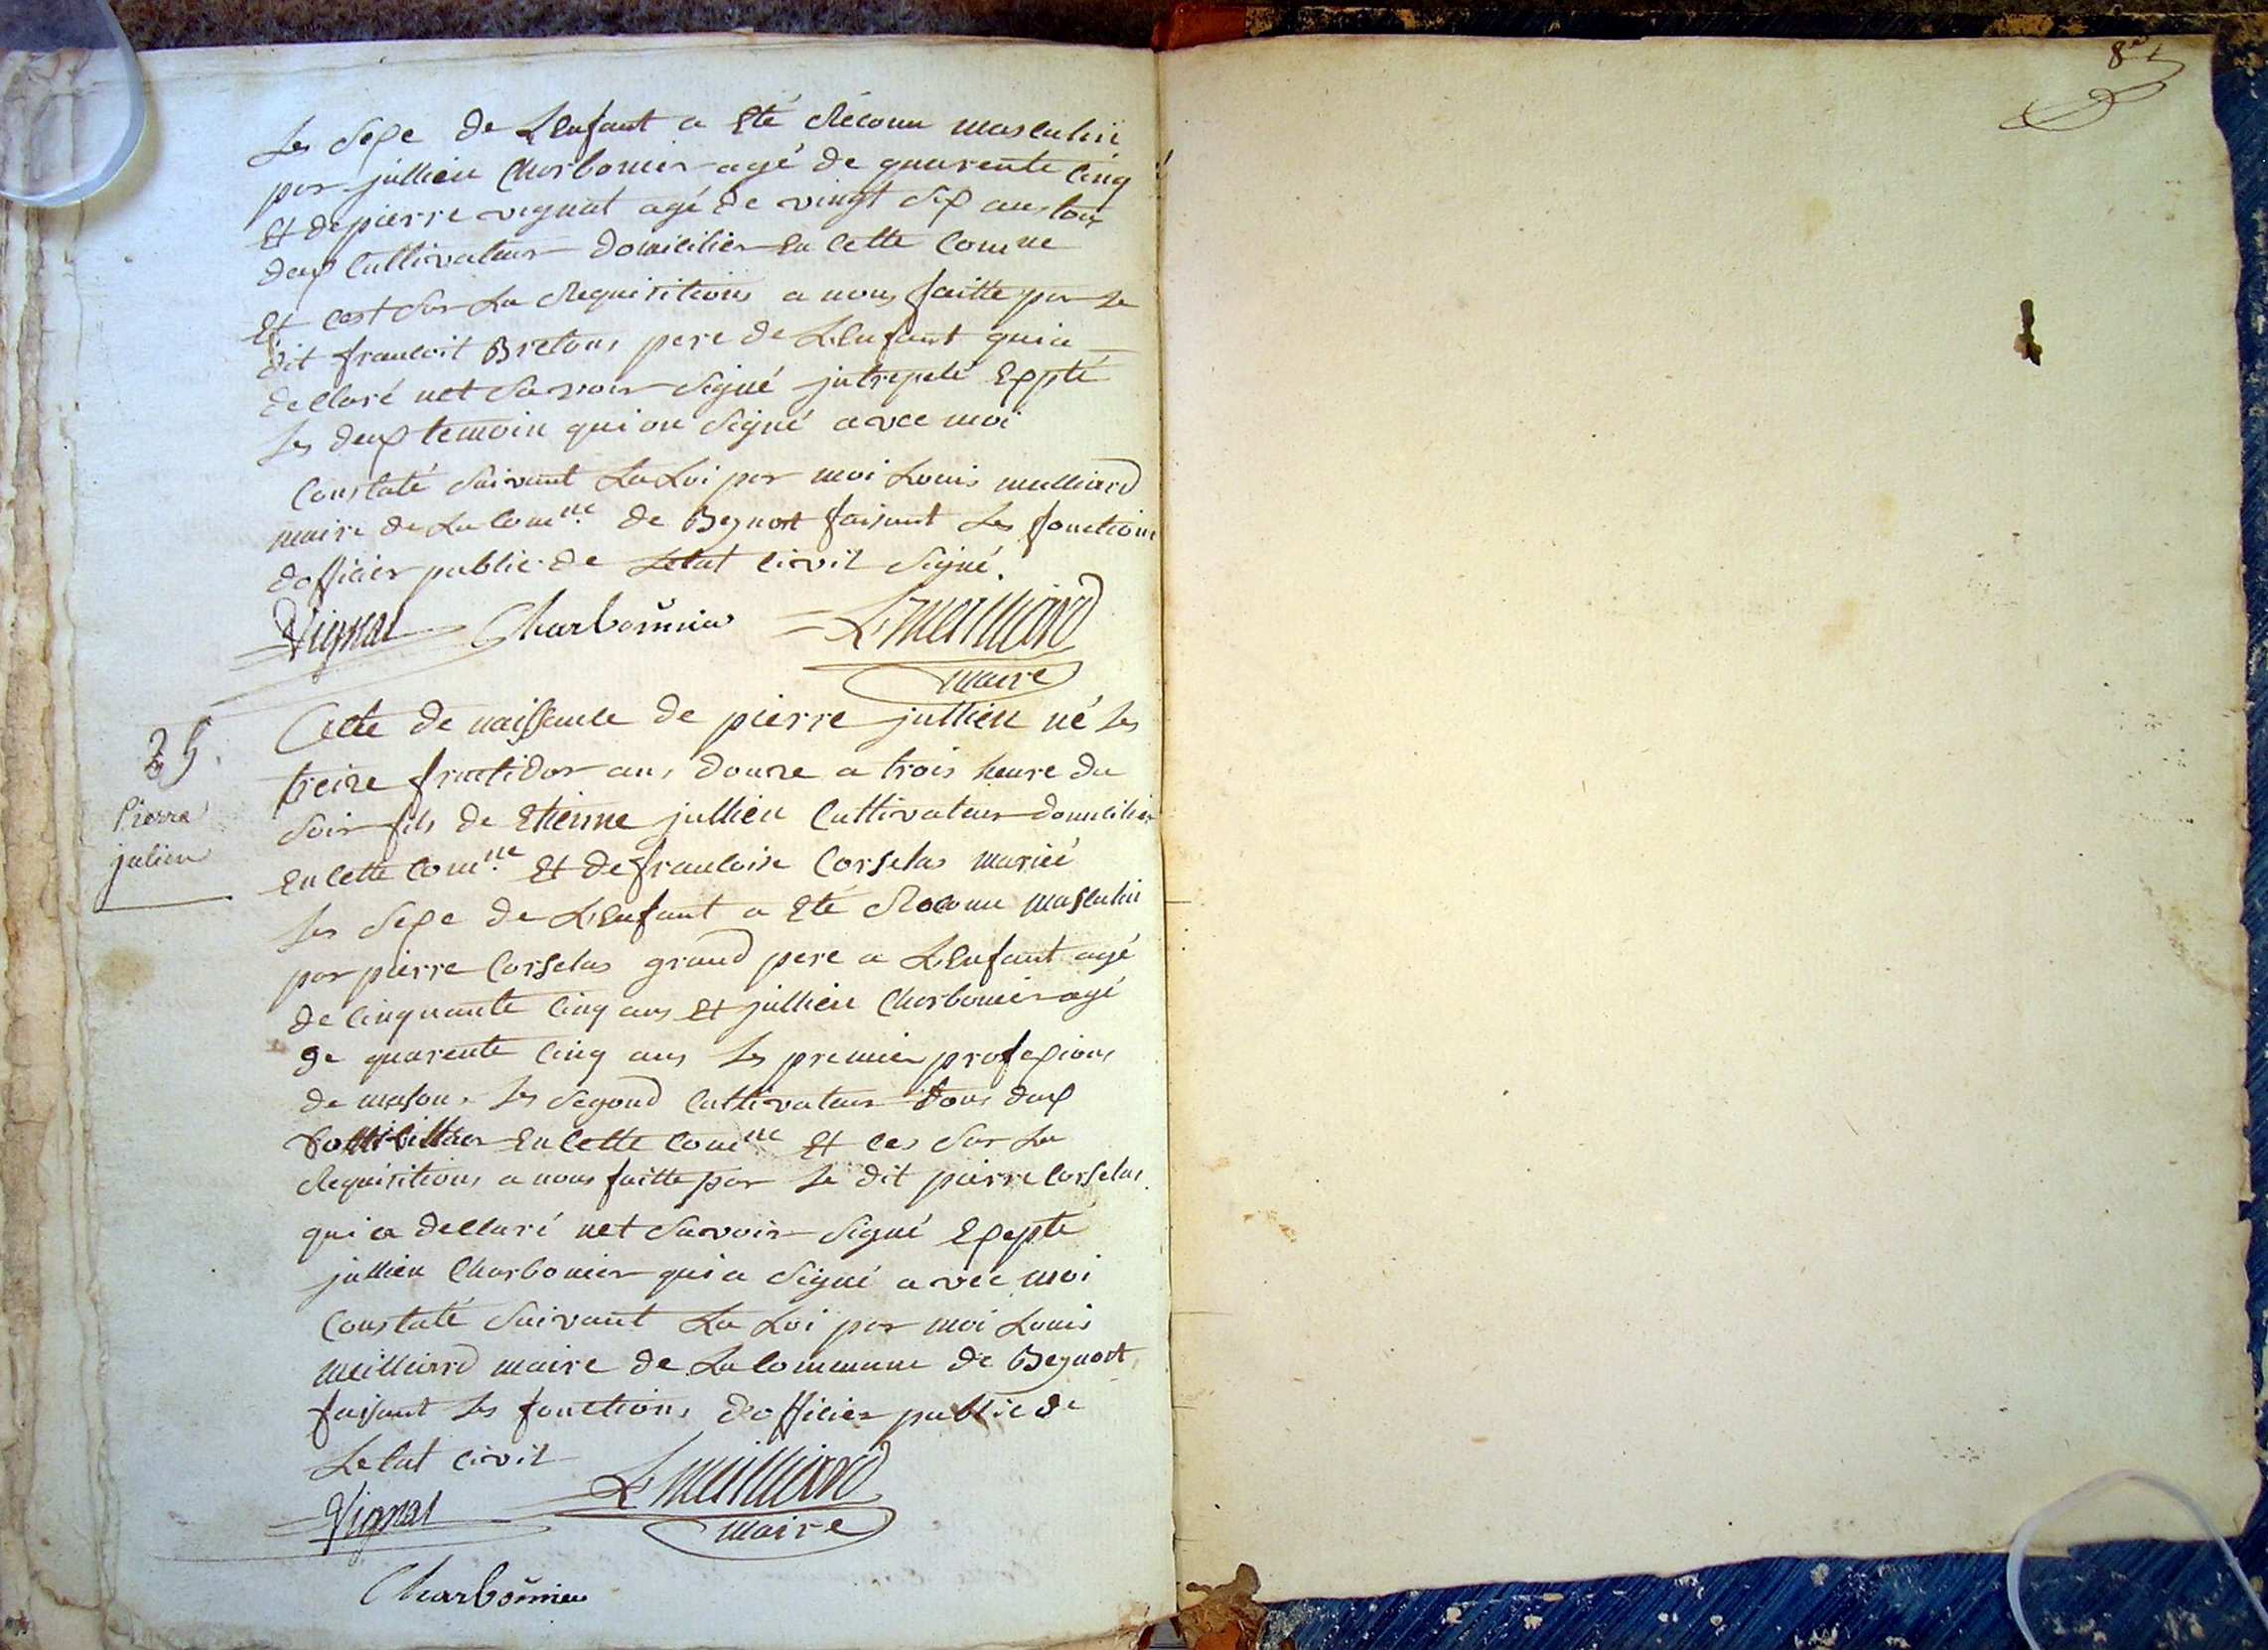 Les Sexe de Lenfant a Eté Réconu masculin
par jullien Charbonier agé de quarente cinq
Et de pierre vignat agé de vingt Six ans tous
deux Cultivateur domicilier En cette Comne
Et cest Sur La Requisitions a nous faitte par Le
dit francoit Bretons pere de LEnfant qui a
declaré net Savoir Signé jntrepelé Expté
Les deux temoin qui on Signé avec moi
Constaté Suivant La Loi par moi Louis meilliard
maire de La Comne de Beynost faisant Les fonctions
dofficier public de Letat Civil Signé.
Vignat Charbonnier L. meilliard
maire
25.
Pierre
julien
Acte de naissance de pierre jullien né Les
treize fructidor ans douze a trois heure du
Soir fils de Etienne jullien Cultivateur domicilier
En cette Comne Et de francoise Corselas mariée
Les Sexe de LEnfant a Eté Reconu masculin
par pierre Corselas grand pere a LEnfant agé
de cinquante cinq ans Et jullien Charbonier agé
de quarente cinq ans Les premier profexions
de mason Les Segond Cultivateur tous deux
En cette Comne Et ces Sur La
Requisitions a nous faitte par Le dit pierre Corselas
qui a declaré net Savoir Signé Exepté
jullien Charbonier qui a Signé avec moi
Constaté Suivant La Loi par moi Louis
meilliard maire de La Commune de Beynost
faisant Les fonctions dofficier public de
Letat Civil
Vignat L. meilliard
maire
Charbonnier
8e